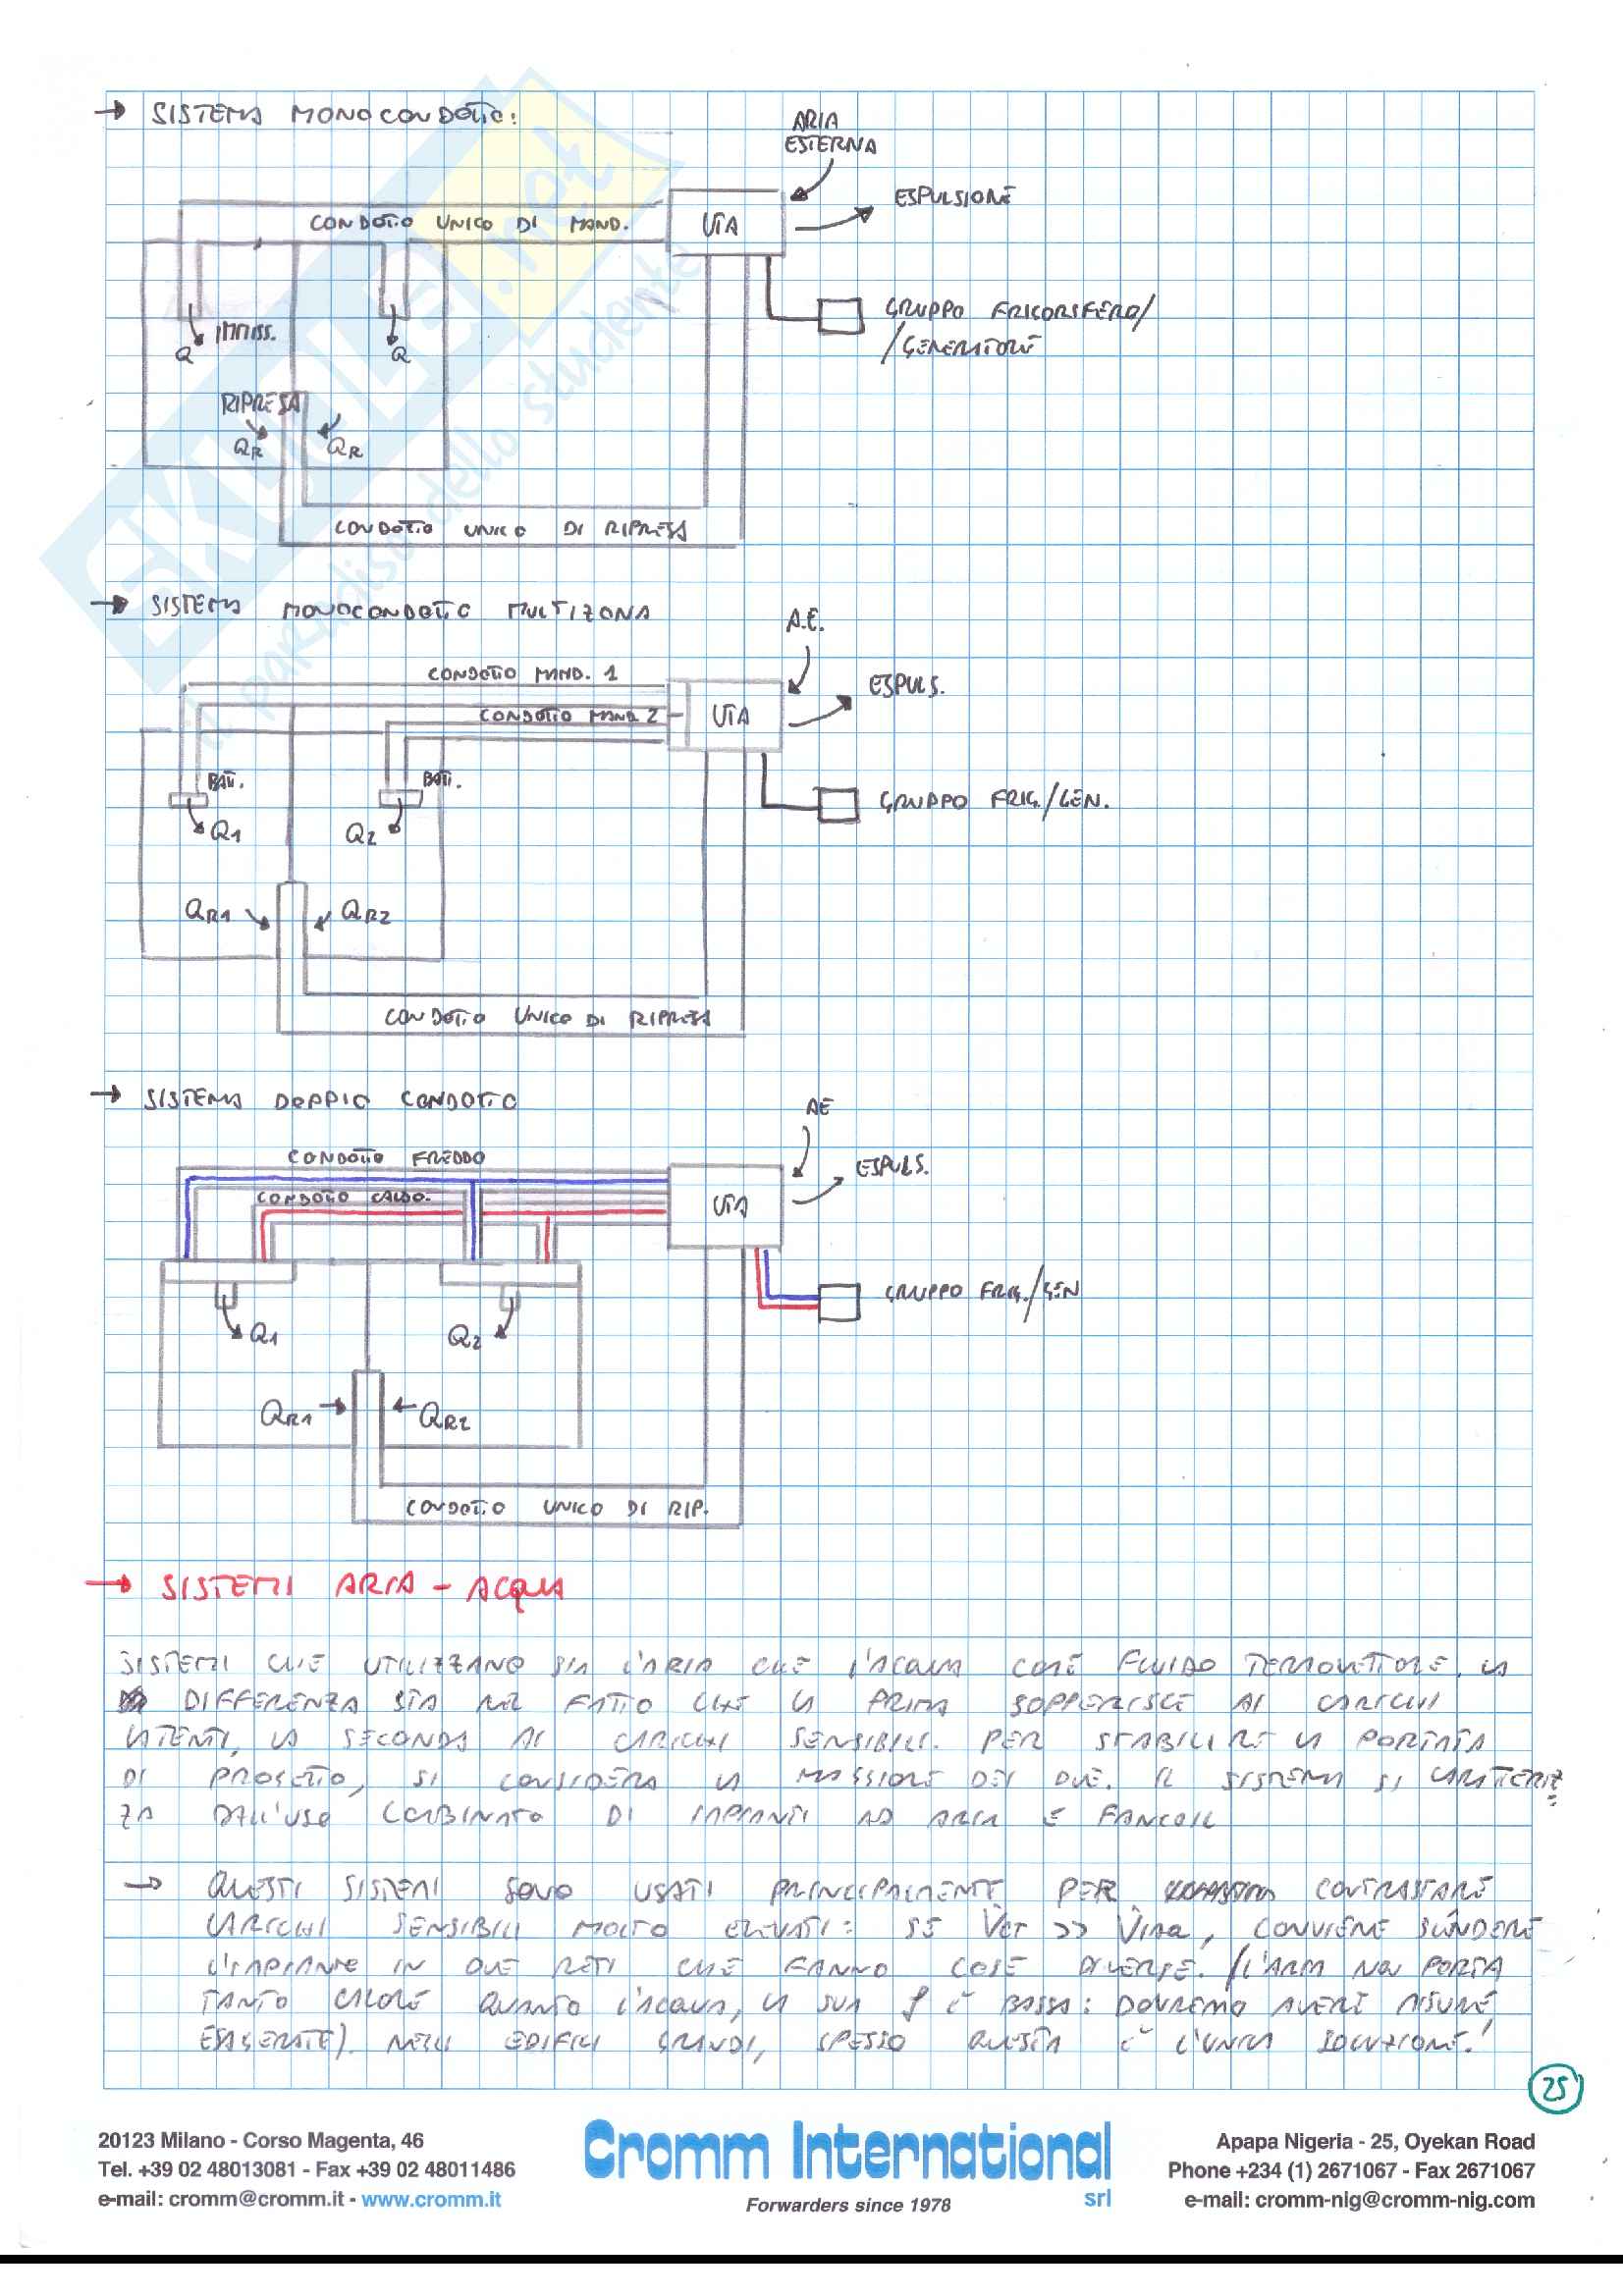 → SISTEMA MONOCONDOTTO:
ARIA
ESTERNA
ESPULSIONE
CONDOTTO UNICO DI MAND.
UTA
GRUPPO FRIGORIFERO/
/GENERATORE
IMMISS.
Q
Q
RIPRESA
QR
QR
CONDOTTO UNICO DI RIPRESA
→ SISTEMA MONOCONDOTTO MULTIZONA
A.E.
CONDOTTO MAND. 1
ESPULS.
CONDOTTO MAND. 2
UTA
BATT.
BATT.
GRUPPO FRIG./GEN.
Q1
Q2
QR1
QR2
CONDOTTO UNICO DI RIPRESA
→ SISTEMA DOPPIO CONDOTTO
AE
CONDOTTO FREDDO
ESPULS.
CONDOTTO CALDO.
UTA
GRUPPO FRIG./GEN
Q1
Q2
QR1
QR2
CONDOTTO UNICO DI RIP.
→ SISTEMI ARIA - ACQUA
SISTEMI CHE UTILIZZANO SIA L'ARIA CHE L'ACQUA COME FLUIDO TERMOVETTORE, LA
DIFFERENZA STA NEL FATTO CHE LA PRIMA SOPPERISCE AI CARICHI
LATENTI, LA SECONDA AI CARICHI SENSIBILI. PER STABILIRE LA PORTATA
DI PROGETTO, SI CONSIDERA LA MASSIORE DEI DUE. IL SISTEMA SI CARATTERIZ
ZA DALL'USO COMBINATO DI IMPIANTI AD ARIA E FANCOIL
→ QUESTI SISTEMI SONO USATI PRINCIPALMENTE PER CONTRASTARE
CARICHI SENSIBILI MOLTO ELEVATI: SE >> , CONVIENE SCINDERE
L'IMPIANTO IN DUE RETI CHE FANNO COSE DIVERSE. (L'ARIA NON PORTA
TANTO CALORE QUANTO L'ACQUA, LA SUA ρ È BASSA: DOVREMO AVERE MISURE
ESAGERATE). NEGLI EDIFICI GRANDI, SPESSO QUESTA È L'UNICA SOLUZIONE!
25
20123 Milano - Corso Magenta, 46
Tel. +39 02 48013081 - Fax +39 02 48011486
e-mail: cromm@cromm.it - www.cromm.it
Cromm International
srl
Forwarders since 1978
Apapa Nigeria - 25, Oyekan Road
Phone +234 (1) 2671067 - Fax 2671067
e-mail: cromm-nig@cromm-nig.com
SKUOLA.net
il paradiso dello studente